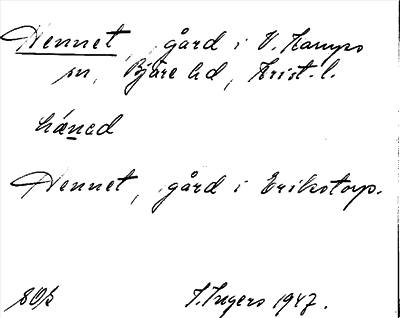 Hennet, gård i V. Karups
sn, Bjäre hd, Krist. l.
hænəd
Hennet, gård i Erikstorp.
I. Ingers 1947.